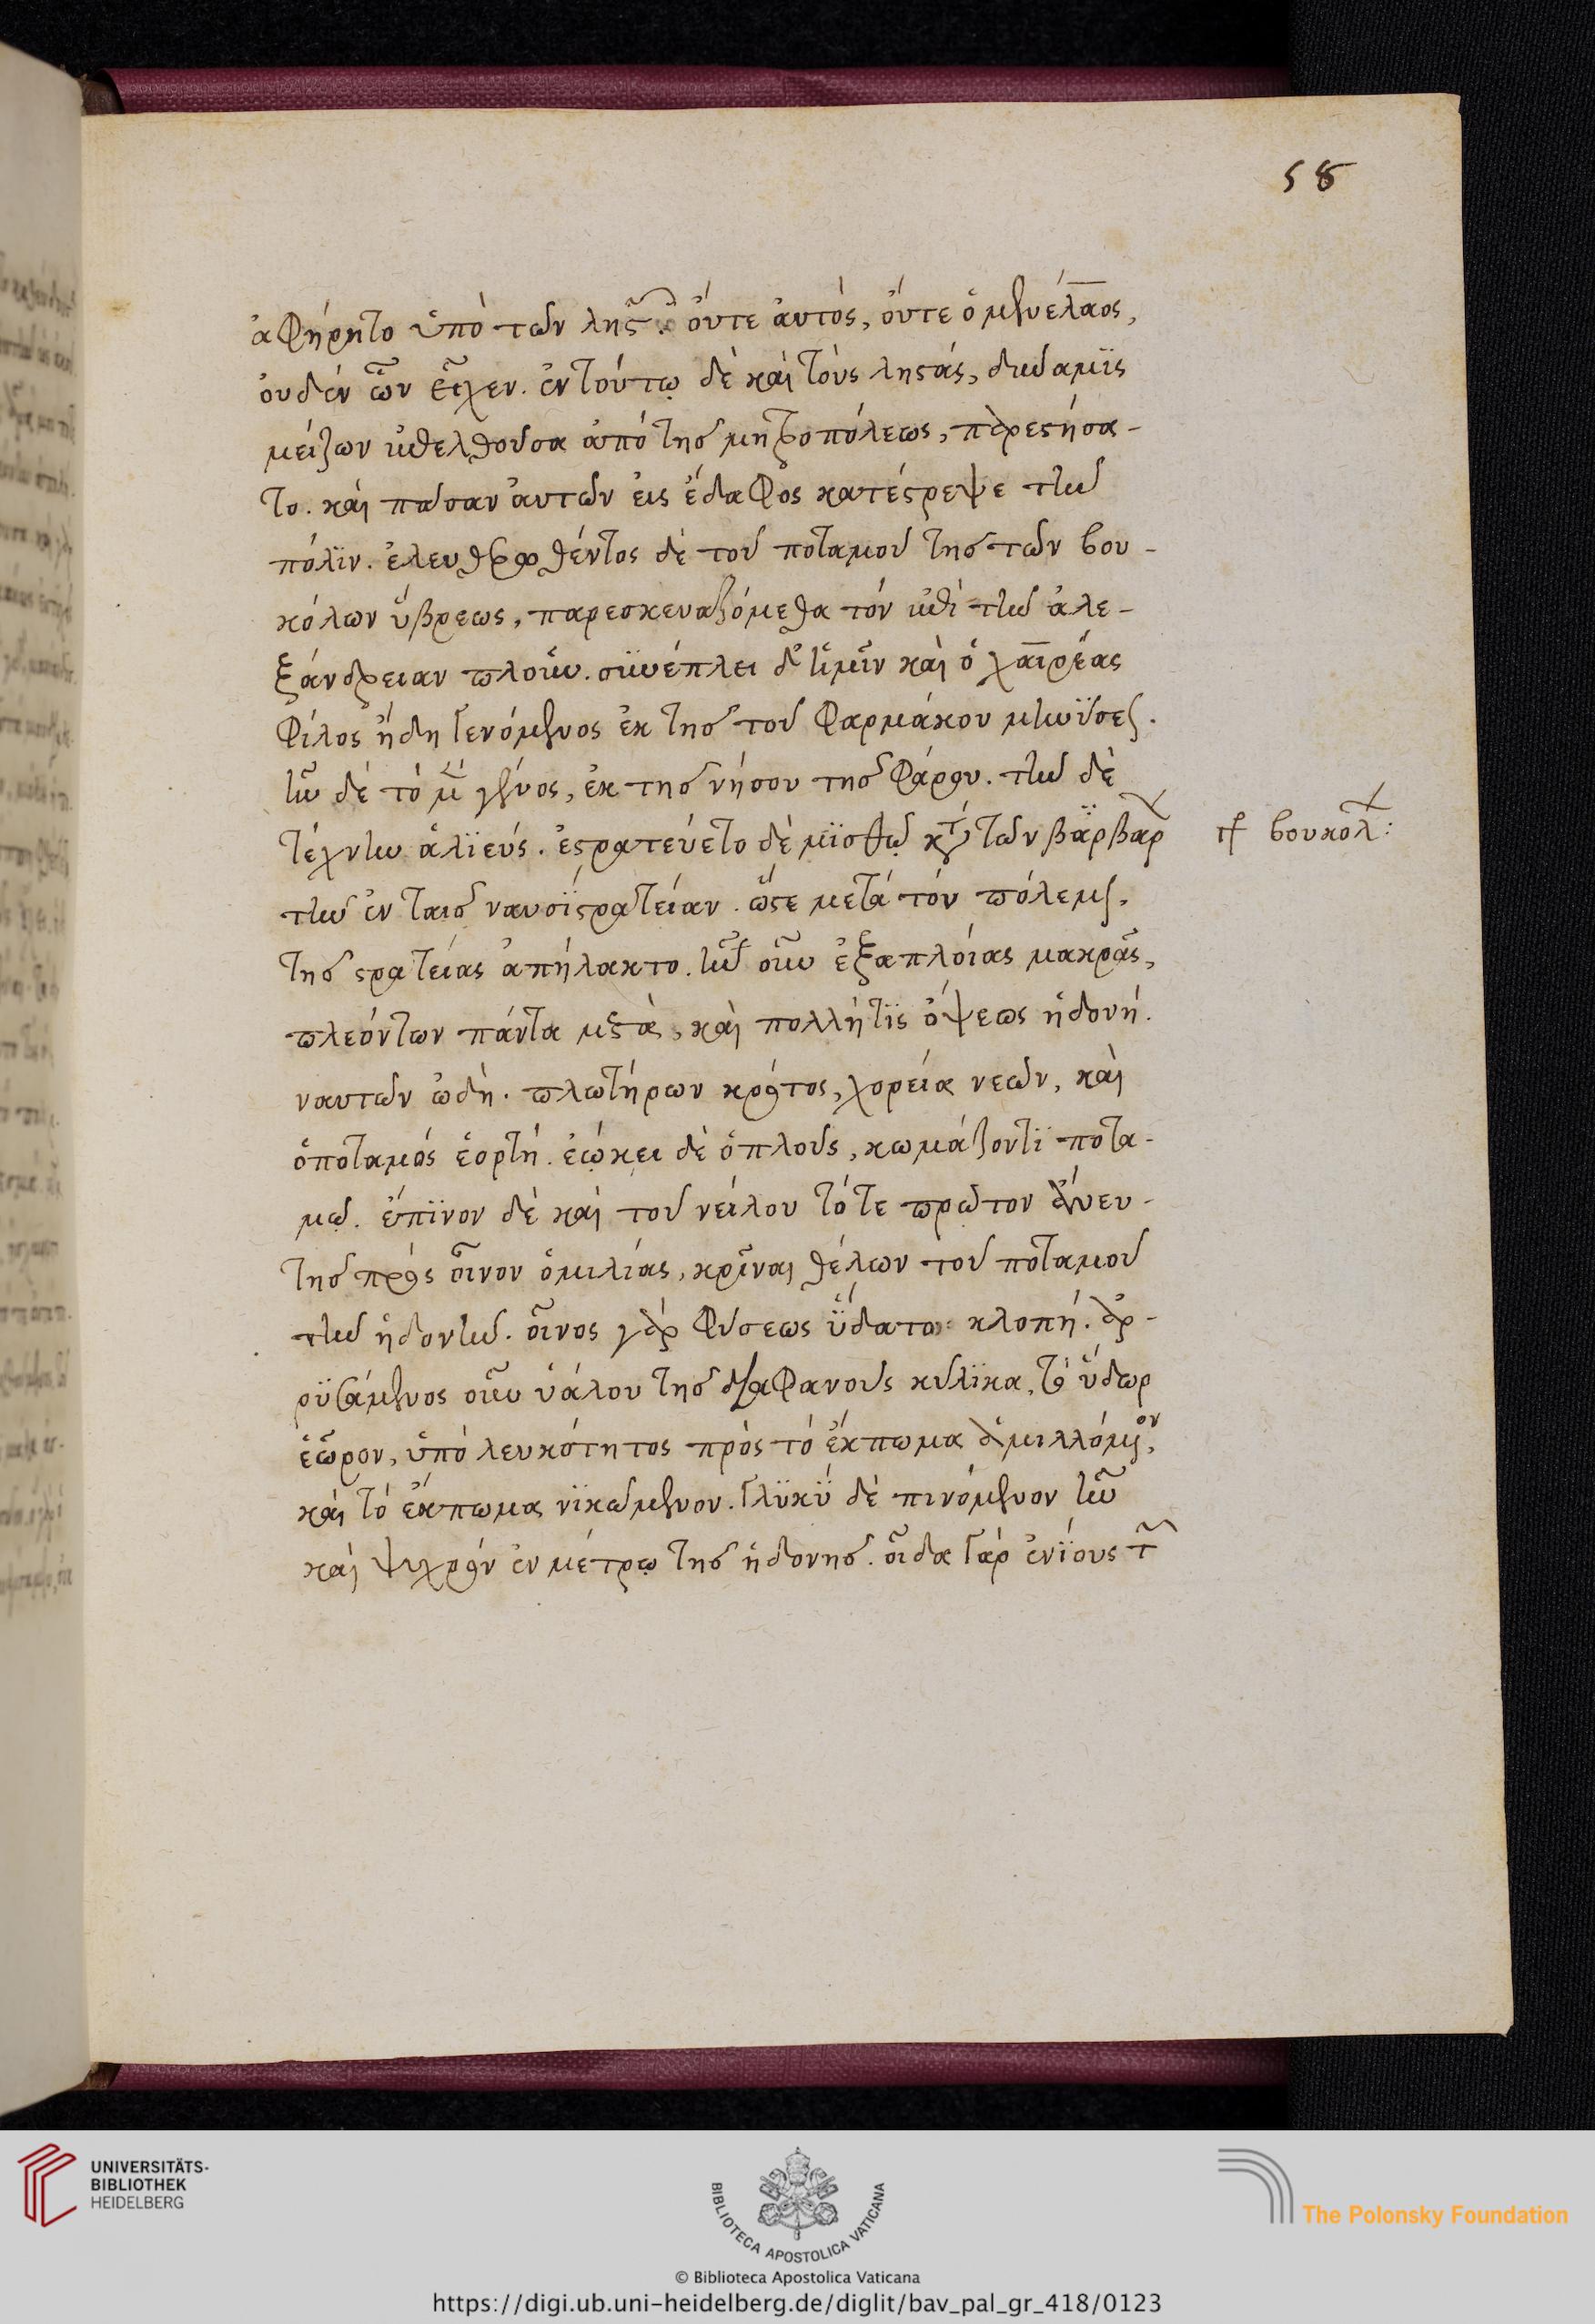 58
ἀφήρητο ὑπὸ τῶν λῃστ οὔτε ἀυτὸς, οὔτε ὁ μενέλαος,
ὀυδὲν ὧν εἶχεν. ἐν τούτῳ δὲ καὶ τοὺς ληστάς, δύναμϊς
μείζων ἐπελθοῦσα ἀπὸ τῆς μητροπόλεως, παρεστήσα-
το. καὶ πᾶσαν ἀυτῶν ἐις ἔδαφος κατέστρεψε τὴν
πόλϊν. ἐλευθερωθέντος δὲ τοῦ ποταμοῦ τῆς τῶν βου-
κόλων ὕβρεως, παρεσκευαζόμεθα τὸν ἐπὶ τὴν ἀλε-
ξάνδρειαν πλοῦν. συνέπλει δ' ἡμῖν καὶ ὁ χαιρέας
φίλος ἤδη γενόμενος ἐκ τῆς τοῦ φαρμάκου μηνύσεως.
ἦν δὲ τὸ μ γένος, ἐκ τῆς νήσου τῆς φάρου. τὴν δὲ
τέχνην ἁλϊεύς. ἐστρατεύετο δὲ μϊσθῷ κατὰ τῶν βαρβαρ
τῶν βουκολ:
τὴν ἐν ταῖς ναυσὶ στρατείαν. ὥστε μετὰ τὸν πόλεμον,
τῆς στρατείας ἀπήλακτο. ἦν οὖν ἐξ ἀπλοίας μακρᾶς,
πλεόντων πάντα μεστὰ, καὶ πολλή τϊς ὄψεως ἡδονή.
ναυτῶν ὠδὴ. πλωτήρων κρότος, χορεία νεῶν, καὶ
ὁ ποταμὸς ἑορτή. ἐῴκει δὲ ὁ πλοῦς, κωμάζοντϊ ποτα-
μῷ. ἔπϊνον δὲ καὶ τοῦ νείλου τότε πρῶτον ἄνευ-
τῆς πρὸς οἶνον ὁμιλίας, κρῖναι θέλων τοῦ ποταμοῦ
τὴν ἡδονὴν. οἶνος γὰρ φύσεως ὕδατος κλοπή. ἀρ-
ρϋσάμενος οὖν ὑάλου τῆς διαφανοῦς κύλϊκα, τὸ ὕδωρ
ἑώρον, ὑπὸ λευκότητος πρὸς τὸ ἔκπωμα ἁμιλλόμενον,
καὶ τὸ ἔκπωμα νϊκώμενον. γλϋκὺ δὲ πινόμενον ἦν
καὶ ψυχρὸν ἐν μέτρῳ τῆς ἡδονῆς. οἶδα γὰρ ἐνϊους τῶν
UNIVERSITÄTS-
BIBLIOTHEK
HEIDELBERG
BIBLIOTECA APOSTOLICA VATICANA
The Polonsky Foundation
© Biblioteca Apostolica Vaticana
https://digi.ub.uni-heidelberg.de/diglit/bav_pal_gr_418/0123